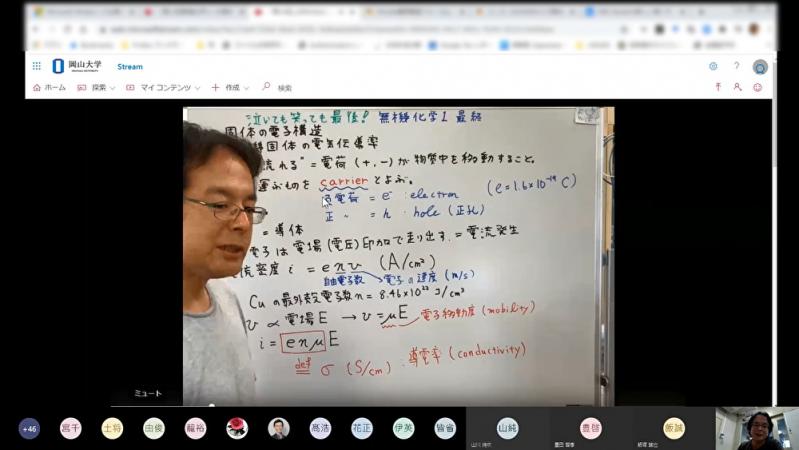 岡山大学
Stream
ホーム 探索 マイ コンテンツ 作成 検索
泣いても笑っても最後! 無機化学I 最終
固体の電子構造
固体の電気伝導率
流れる" = 電荷 (+, -) が物質中を移動すること。
運ぶものを carrier とよぶ。
負電荷 = e⁻ : electron (e = 1.6×10⁻¹⁹ C)
正 〃 = h : hole (正孔)
= 導体
電子は電場 (電圧) 印加で走り出す. = 電流発生
電流密度 i = e n v (A/cm²)
自由電子数 電子の速度 (m/s)
Cu の最外殻電子数 n = 8.46×10²² コ/cm³
v ∝ 電場 E → v = μE 電子移動度 (mobility)
i = enμE
def σ (S/cm) : 導電率 (conductivity)
ミュート
+46 宮千 土将 由俊 龍裕 髙浩 花正 伊英 皆省 山純 豊啓 飯誠